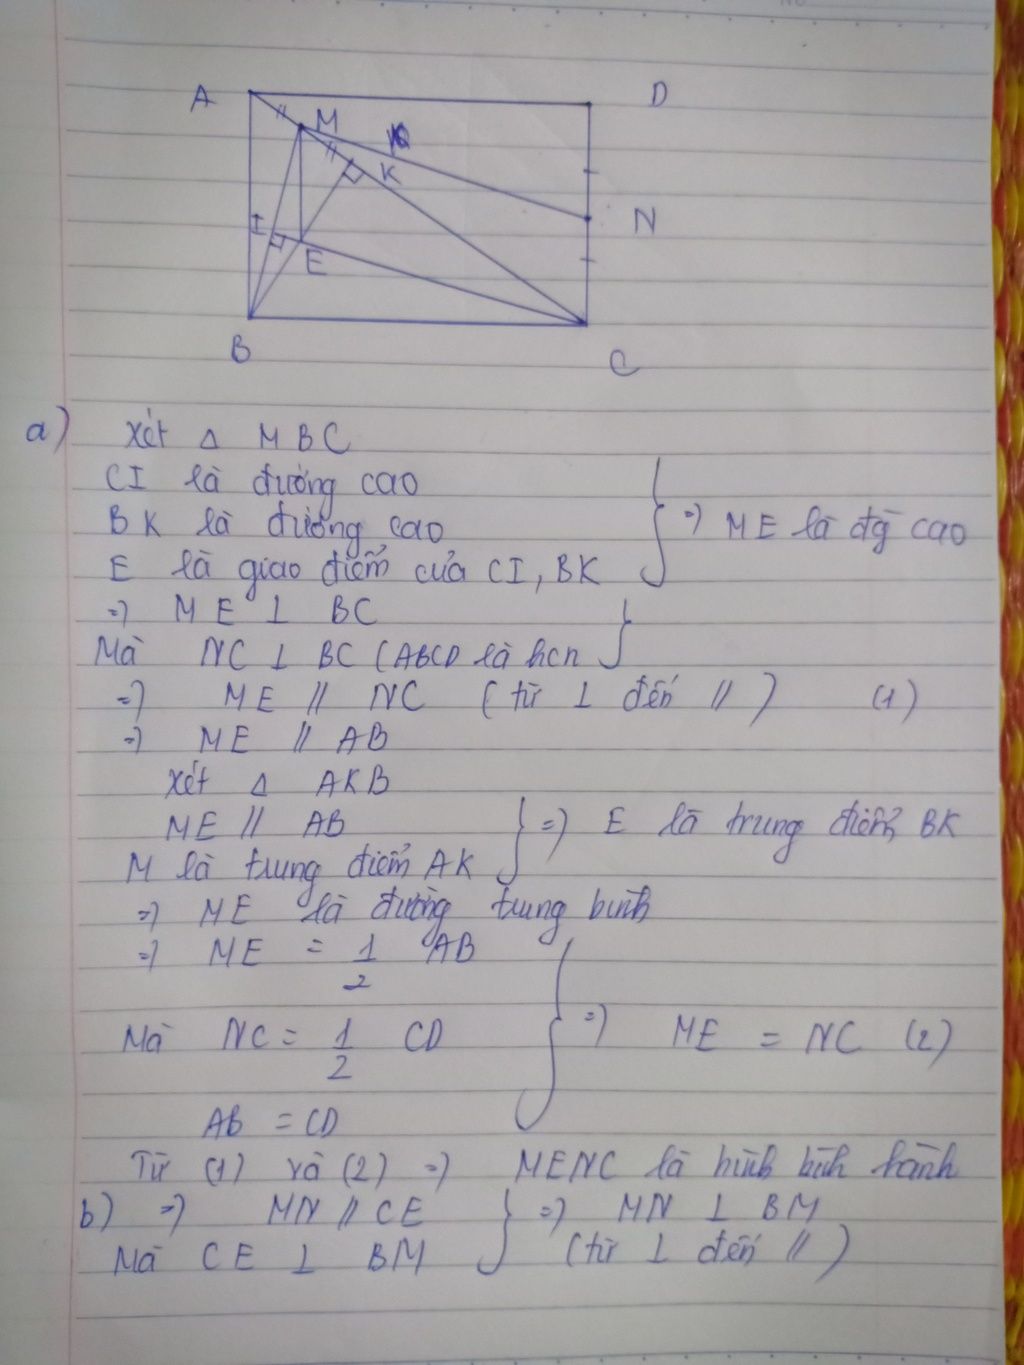 A
D
M
K
N
I
E
B
C
a) Xét Δ MBC
CI là đường cao
BK là đường cao => ME là đg cao
E là giao điểm của CI, BK
=> ME ⊥ BC
Mà NC ⊥ BC (ABCD là hcn
=> ME // NC (từ ⊥ đến //) (1)
=> ME // AB
Xét Δ AKB
ME // AB => E là trung điểm BK
M là trung điểm AK
=> ME là đường trung bình
=> ME = 1/2 AB
Mà NC = 1/2 CD => ME = NC (2)
AB = CD
Từ (1) và (2) => MENC là hình bình hành
b) => MN // CE => MN ⊥ BM
Mà CE ⊥ BM (từ ⊥ đến //)